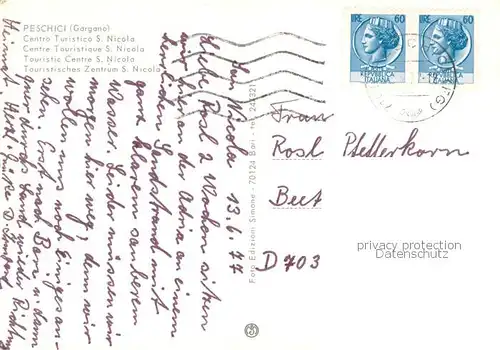 PESCHICI (Gargano)
Centro Turistico S. Nicola
Centre Touristique S. Nicola
Touristic Centre S. Nicola
Touristisches Zentrum S. Nicola
LIRE 60
LIRE 60
San Nicola 13.6.77
Liebe Rosl 2 Wochen sitzen
wir an der Adria an einem
Sandstrand mit
ganz klarem sauberem
Wasser. Leider müssen wir
morgen hier weg, denn wir
wollen uns noch Einiges an
sehen. Erst nach Bari u. dann
Richtung
Foto Edizioni Simone - 70124 Bari - tel. 244321
Frau
Rosl Pfefferkorn
Beet
D 703
privacy protection
Datenschutz